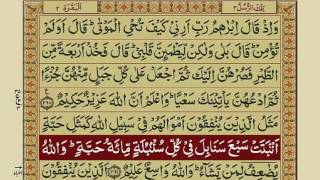 تِلْكَ الرُّسُلُ ٣
الْبَقَرَة ٢
وَاِذْ قَالَ اِبْرٰهٖمُ رَبِّ اَرِنِیْ كَیْفَ تُحْیِ الْمَوْتٰی ؕ قَالَ اَوَلَمْ
تُؤْمِنْ ؕ قَالَ بَلٰی وَلٰكِنْ لِّیَطْمَىِٕنَّ قَلْبِیْ ؕ قَالَ فَخُذْ اَرْبَعَةً مِّنَ
الطَّیْرِ فَصُرْهُنَّ اِلَیْكَ ثُمَّ اجْعَلْ عَلٰی كُلِّ جَبَلٍ مِّنْهُنَّ جُزْءًا
ثُمَّ ادْعُهُنَّ یَاْتِیْنَكَ سَعْیًا ؕ وَاعْلَمْ اَنَّ اللّٰهَ عَزِیْزٌ حَكِیْمٌ ﴿۲۶۰﴾
مَثَلُ الَّذِیْنَ یُنْفِقُوْنَ اَمْوَالَهُمْ فِیْ سَبِیْلِ اللّٰهِ كَمَثَلِ حَبَّةٍ
اَنْۢبَتَتْ سَبْعَ سَنَابِلَ فِیْ كُلِّ سُنْۢبُلَةٍ مِّائَةُ حَبَّةٍ ؕ وَاللّٰهُ
یُضٰعِفُ لِمَنْ یَّشَآءُ ؕ وَاللّٰهُ وَاسِعٌ عَلِیْمٌ ﴿۲۶۱﴾ اَلَّذِیْنَ یُنْفِقُوْنَ